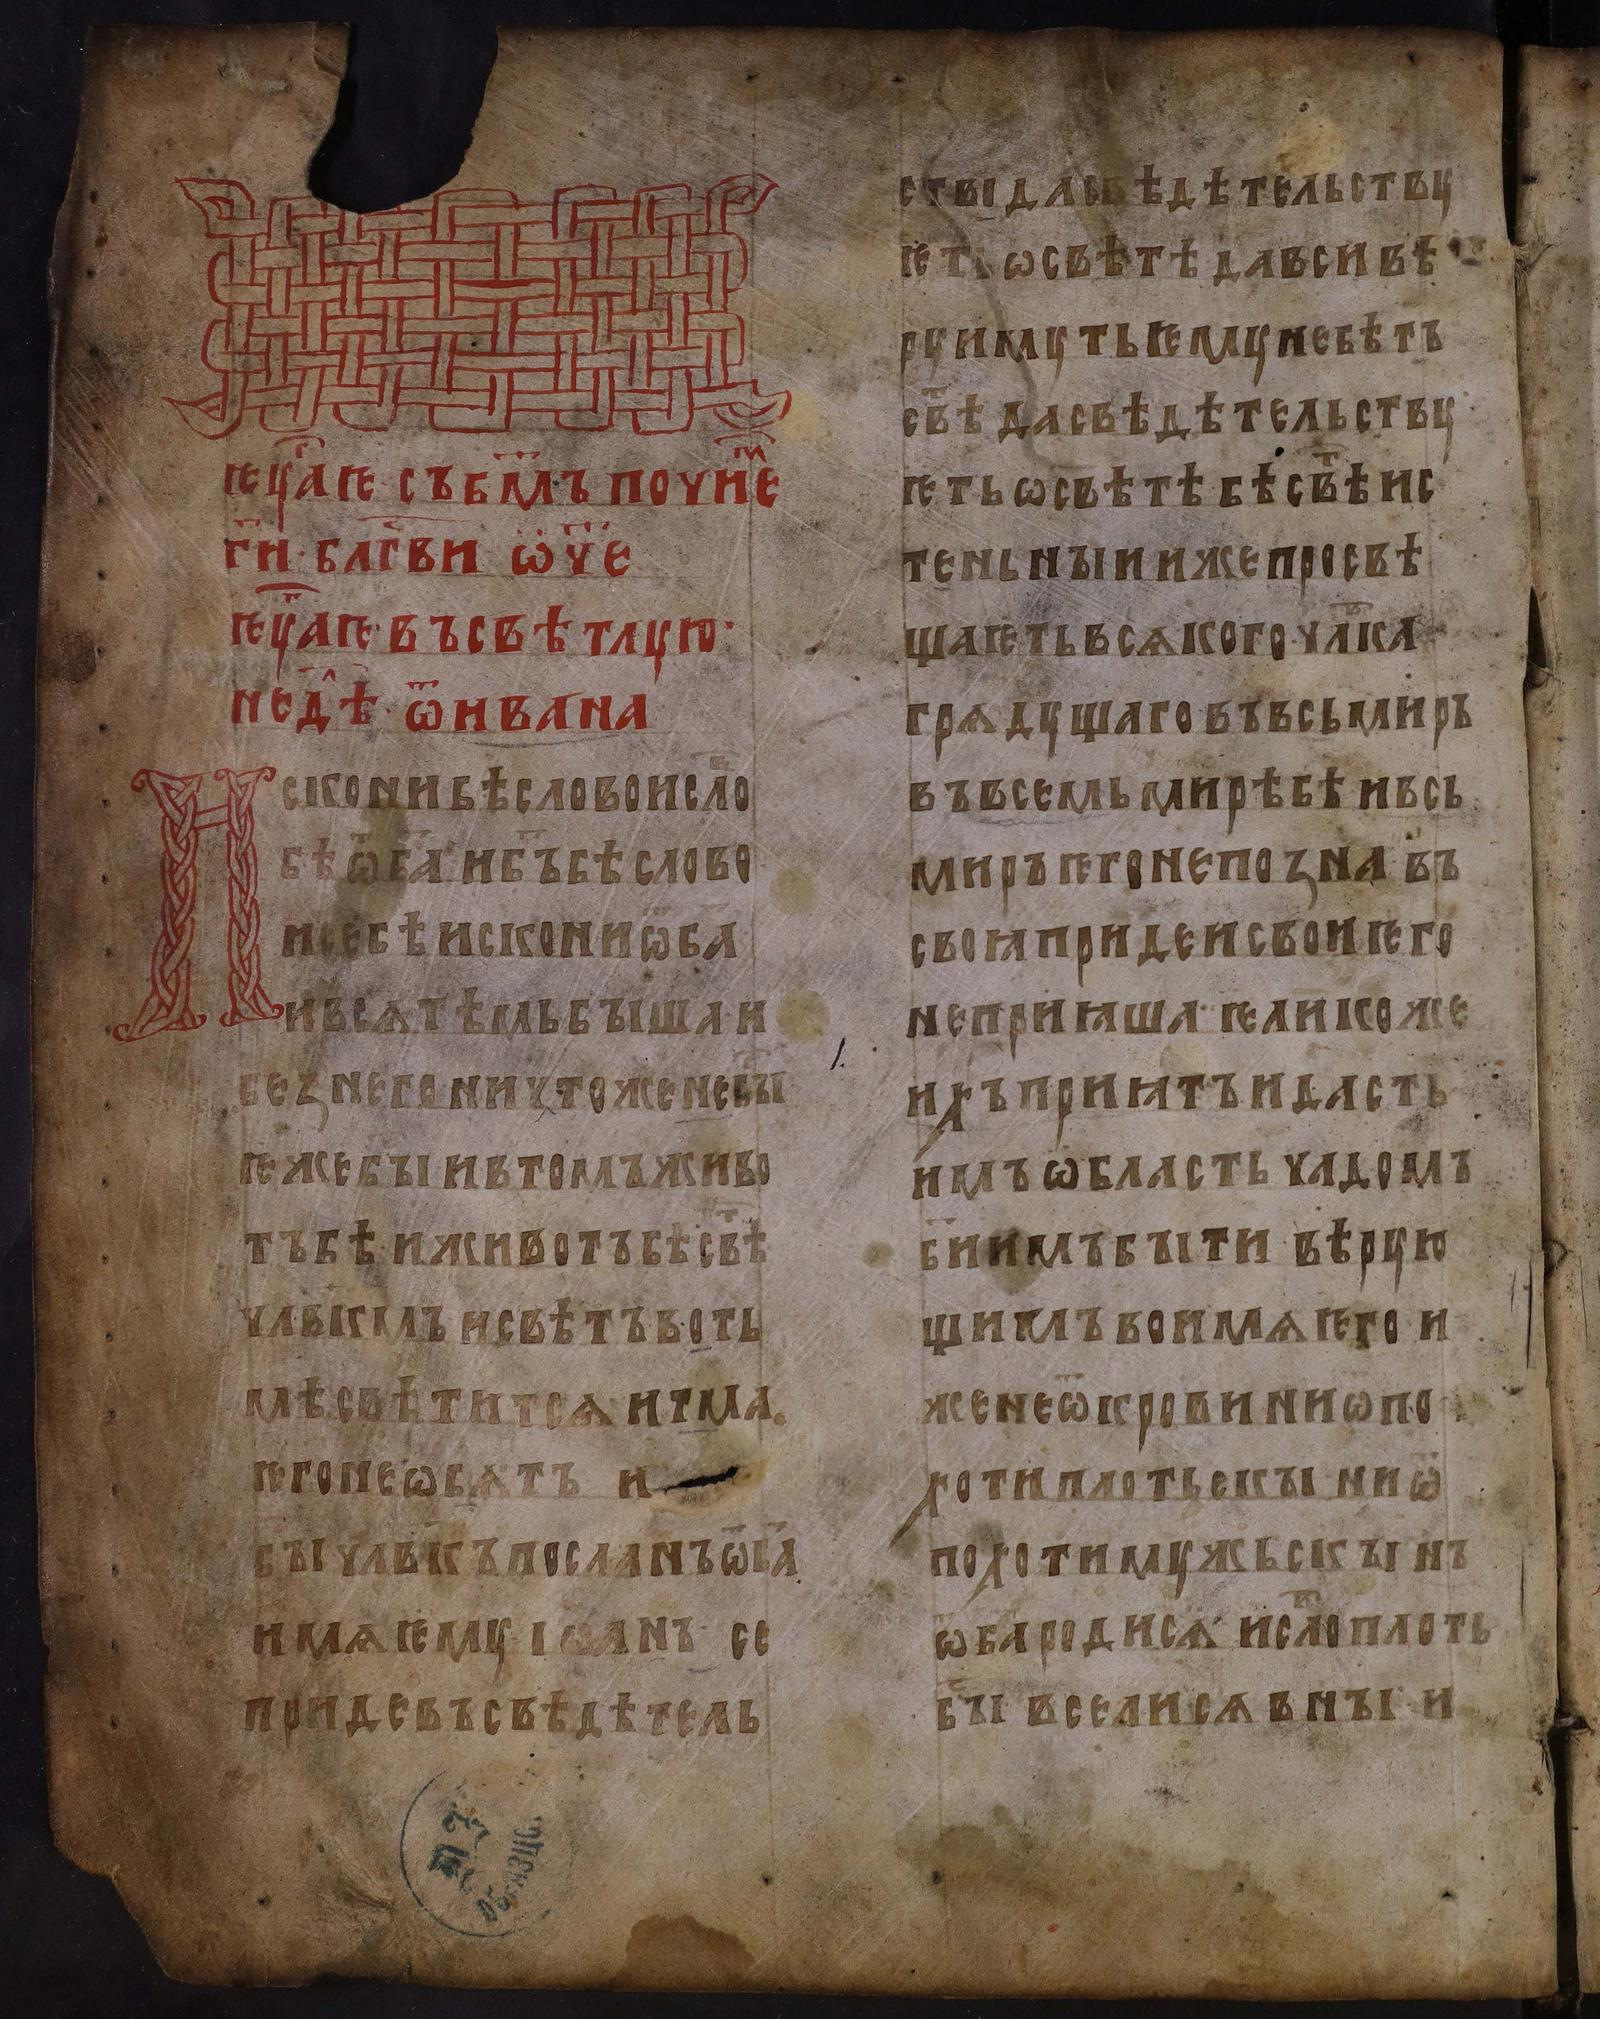 ѥѵⷢ҇аѥ съ бм҃ъ почнеⷨ҇
г҃и бл҃гви ѿч҃е
ѥѵⷢ҇аѥ въ свѣтлꙋю
недⷧ҇ѣ ѿ ивана
Искони бѣ слово и слⷪ҇о
бѣ ѿ б҃а и б҃ъ бѣ слово
и се бѣ искони ѿ б҃а
и всѧ тѣмь быша и
без него ничтоже не бы҇
ѥже бы и в томъ живо
тъ бѣ и животъ бѣ свⷮ҇ѣ
чл҃вкмъ и свѣтъ во ть
мѣ свѣтитсѧ и тма
ѥго не ѡбѧтъ и
бы чл҃вкъ посланъ ѿ б҃а
имѧ ѥмꙋ іѡанъ се
приде въ свѣдѣтель
ствы да свѣдѣтельствꙋ
ѥть ѡ свѣтѣ да вси вѣ
рꙋ имꙋть ѥмꙋ не бѣ тъ
свⷮ҇ѣ да свѣдѣтельствꙋ
ѥть ѡ свѣтѣ бѣ свⷮ҇ѣ ис
теньныи иже просвѣ
щаѥть всѧкого чл҃вка
грѧдꙋщаго въ всь миръ
въ всемь мирѣ бѣ и всь
миръ ѥго не позна въ
своꙗ приде и свои ѥго
не приꙗша ѥликоже
ихъ приꙗтъ и дасть
имъ ѡбласть чадомъ
б҃иимъ быти вѣрꙋю
щиимъ во имѧ ѥго и
же не ѿ крови ни ѿ по
хоти плотьскы ни ѿ
похоти мꙋжьскы нъ
ѿ б҃а родисѧ и слⷪ҇о плоть
бы҇ вселисѧ в ны и